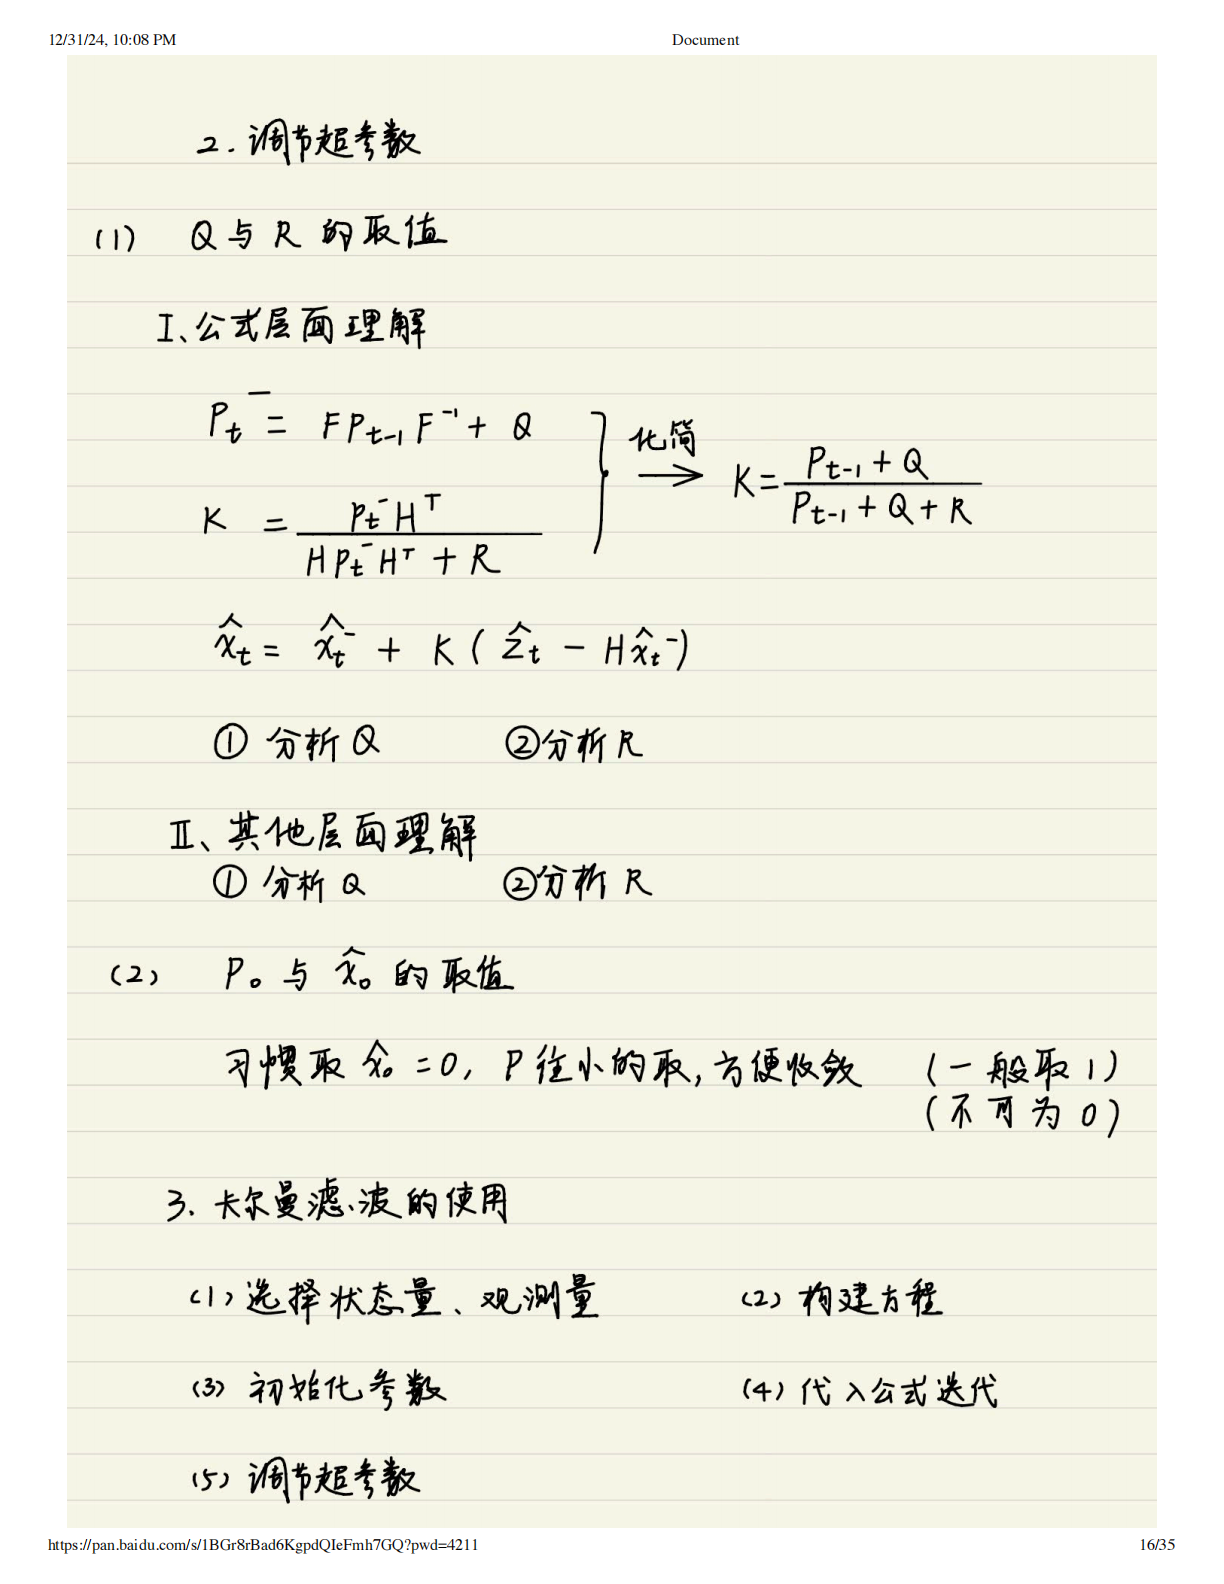 12/31/24, 10:08 PM Document
2. 调节超参数
(1) Q与R的取值
I、公式层面理解
P_t^- = F P_{t-1} F^{-1} + Q
化简
K = (P_{t-1} + Q) / (P_{t-1} + Q + R)
K = (P_t^- H^T) / (H P_t^- H^T + R)
x̂_t = x̂_t^- + K ( ẑ_t - H x̂_t^- )
① 分析Q ②分析R
II、其他层面理解
① 分析Q ②分析R
(2) P₀与x̂₀的取值
习惯取 x̂₀=0, P往小的取,方便收敛 (一般取1)
(不可为0)
3. 卡尔曼滤波的使用
(1)选择状态量、观测量 (2)构建方程
(3)初始化参数 (4)代入公式迭代
(5)调节超参数
https://pan.baidu.com/s/1BGr8rBad6KgpdQIeFmh7GQ?pwd=4211 16/35